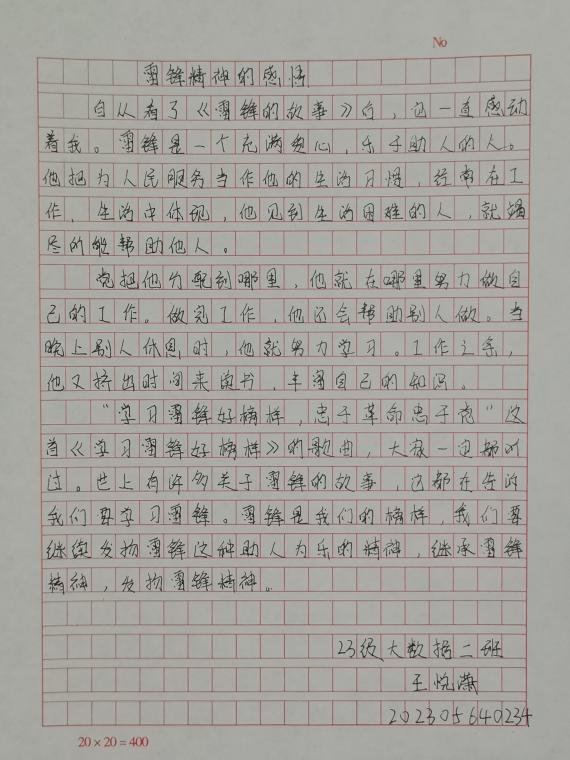 No
雷锋精神的感悟
自从看了《雷锋的故事》后，它一直感动
着我。雷锋是一个充满爱心，乐于助人的人。
他把为人民服务当作他的生活习惯，经常在工
作，生活中体现，他见到生活困难的人，就竭
尽所能帮助他人。
党把他分配到哪里，他就在哪里努力做自
己的工作。做完工作，他还会帮助别人做。当
晚上别人休息时，他就努力学习。工作之余，
他又挤出时间来读书，丰富自己的知识。
“学习雷锋好榜样，忠于革命忠于党”这
首《学习雷锋好榜样》的歌曲，大家一定都听
过。世上有许多关于雷锋的故事，它都在告诉
我们要学习雷锋。雷锋是我们的榜样，我们要
继续发扬雷锋这种助人为乐的精神，继承雷锋
精神，发扬雷锋精神。
23级大数据二班
王悦潇
202305640234
20×20=400